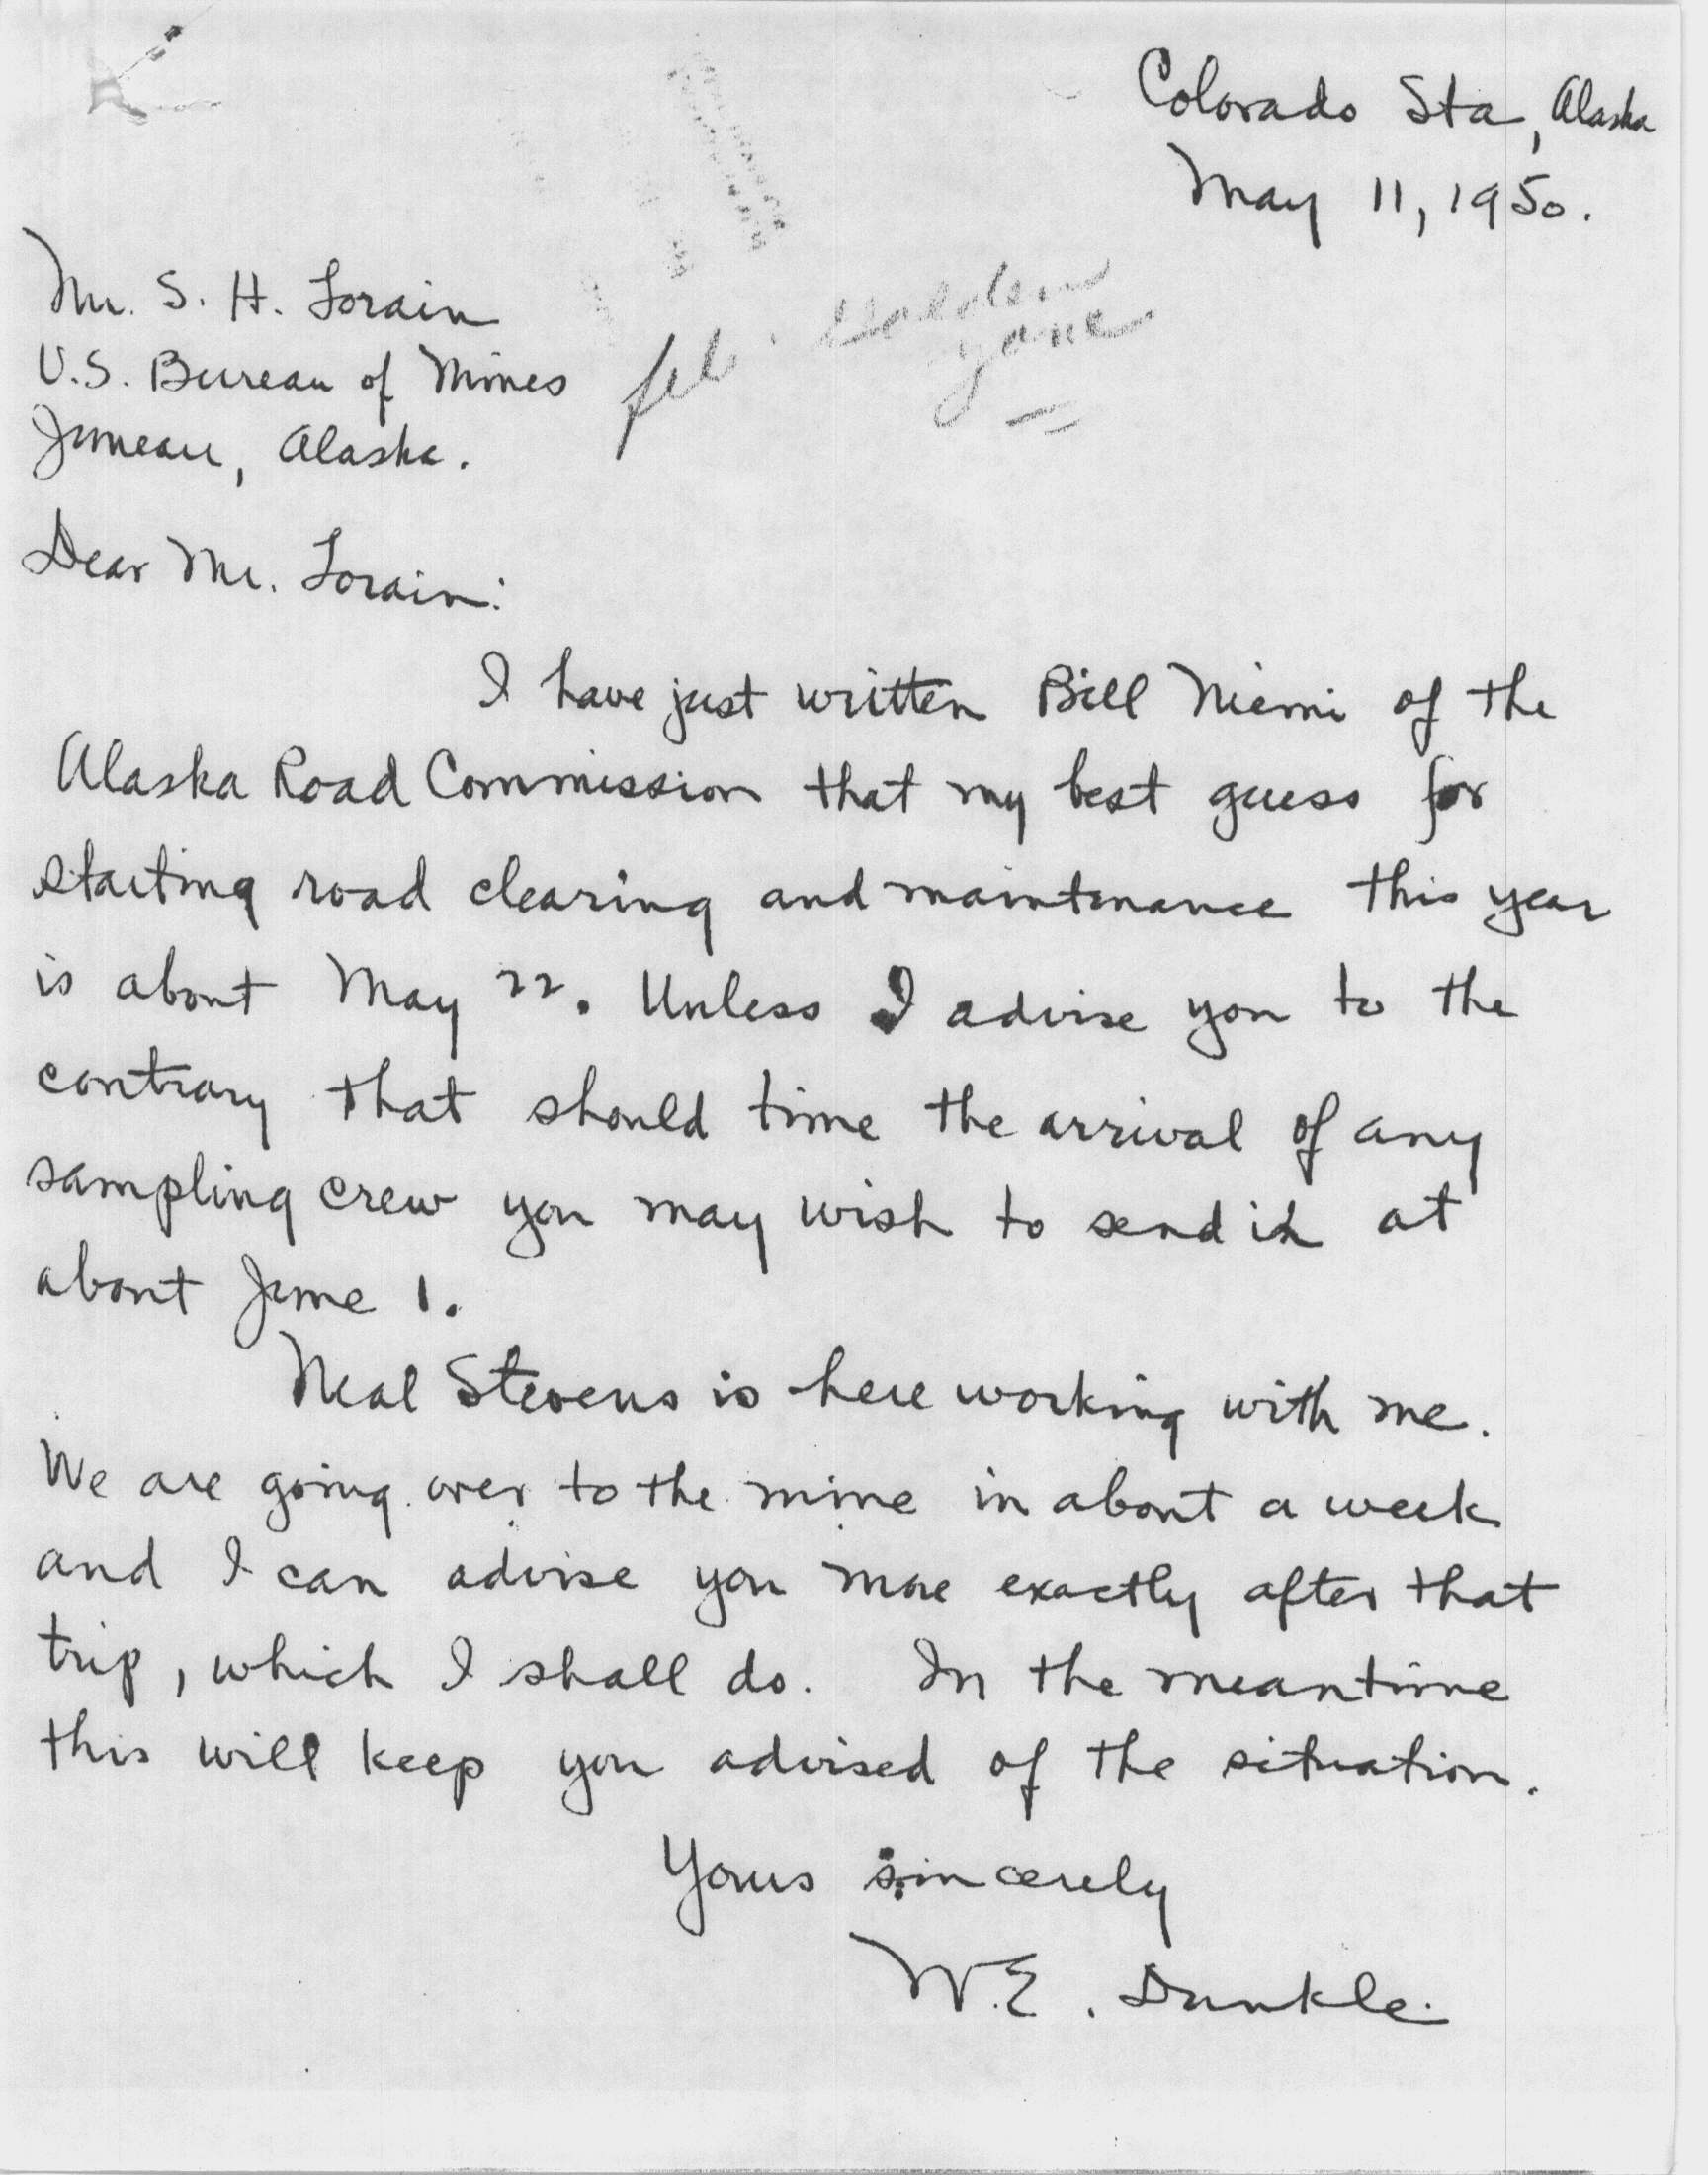 Colorado Sta, Alaska
May 11, 1950.
Mr. S. H. Lorain
U.S. Bureau of Mines
Juneau, Alaska.
file Golden
Zone
Dear Mr. Lorain:
I have just written Bill Niemi of the
Alaska Road Commission that my best guess for
starting road clearing and maintenance this year
is about May 22. Unless I advise you to the
contrary that should time the arrival of any
sampling crew you may wish to send in at
about June 1.
Neal Stevens is here working with me.
We are going over to the mine in about a week
and I can advise you more exactly after that
trip, which I shall do. In the meantime
this will keep you advised of the situation.
Yours sincerely
W.E. Dunkle.